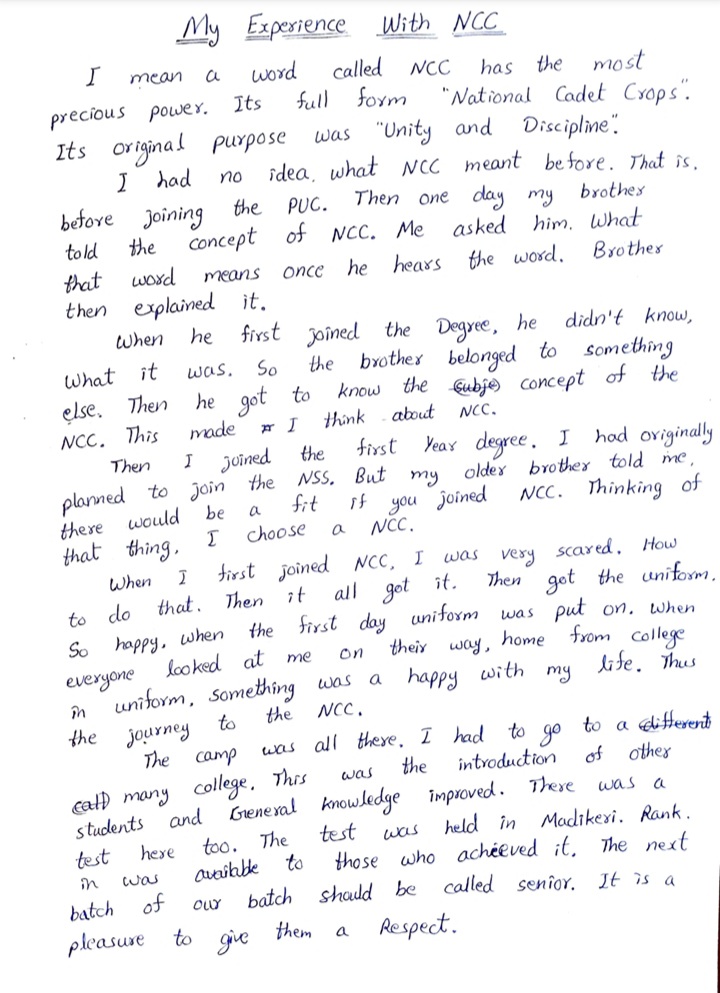 My Experience With NCC
I mean a word called NCC has the most
precious power. Its full form "National Cadet Crops".
Its original purpose was "Unity and Discipline".
I had no idea. what NCC meant before. That is.
before joining the PUC. Then one day my brother
told the concept of NCC. Me asked him. What
that word means once he hears the word. Brother
then explained it.
When he first joined the Degree, he didn't know,
What it was. So the brother belonged to something
else. Then he got to know the concept of the
NCC. This made I think about NCC.
Then I joined the first Year degree. I had originally
planned to join the NSS. But my older brother told me,
there would be a fit if you joined NCC. Thinking of
that thing, I choose a NCC.
When I first joined NCC, I was very scared. How
to do that. Then it all got it. Then got the uniform.
So happy, when the first day uniform was put on. When
everyone looked at me on their way, home from college
in uniform, something was a happy with my life. Thus
the journey to the NCC.
The camp was all there. I had to go to a different
many college. This was the introduction of other
students and General knowledge improved. There was a
test here too. The test was held in Madikeri. Rank.
in was available to those who achieved it. The next
batch of our batch should be called senior. It is a
pleasure to give them a Respect.